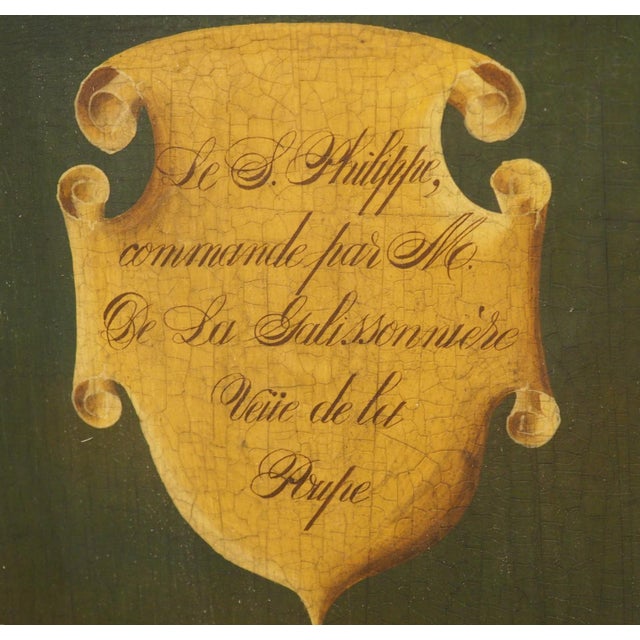 Le S. Philippe,
commande par M.
De La Galissonnière
Veüe de la
Poupe